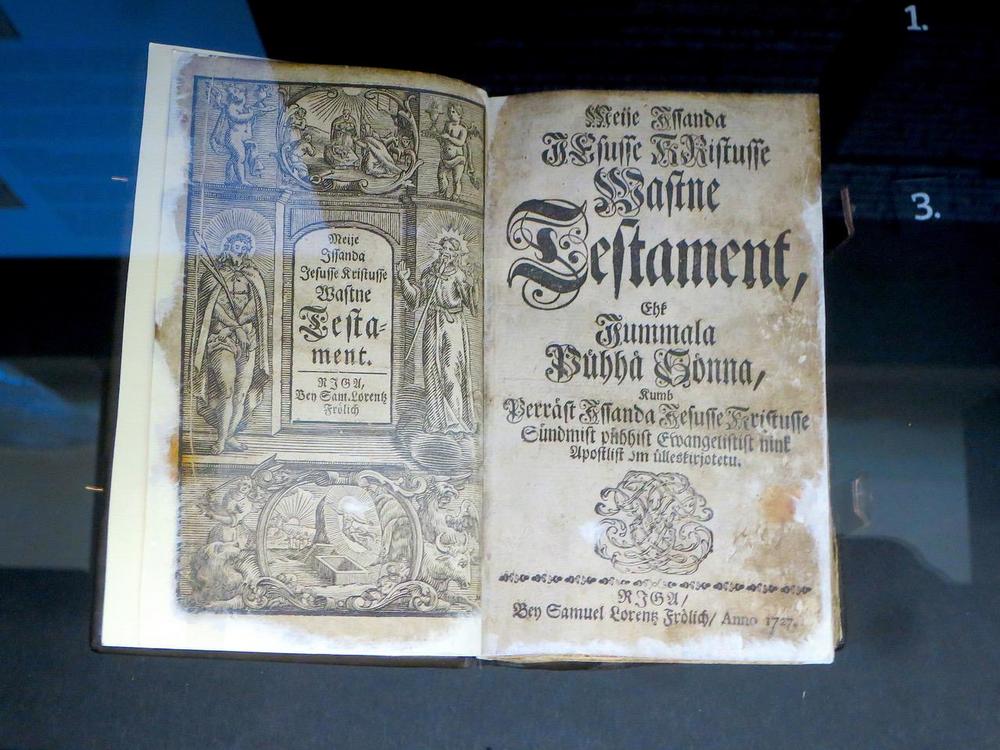 1.
3.
Meije
Issanda
Jesusse Kristusse
Wastne
Testa-
ment.
RIGA,
Bey Sam. Lorentz
Frölich
Meije Issanda
JEsusse KRistusse
Wastne
Testament,
Ehk
Jummala
Pühhä Sönna,
Kumb
Perräst Issanda Jesusse Kristusse
Sündmist pühhist Ewangelistist nink
Apostlist om ülleskirjotetu.
RIGA/
Bey Samuel Lorentz Frölich/ Anno 1727.